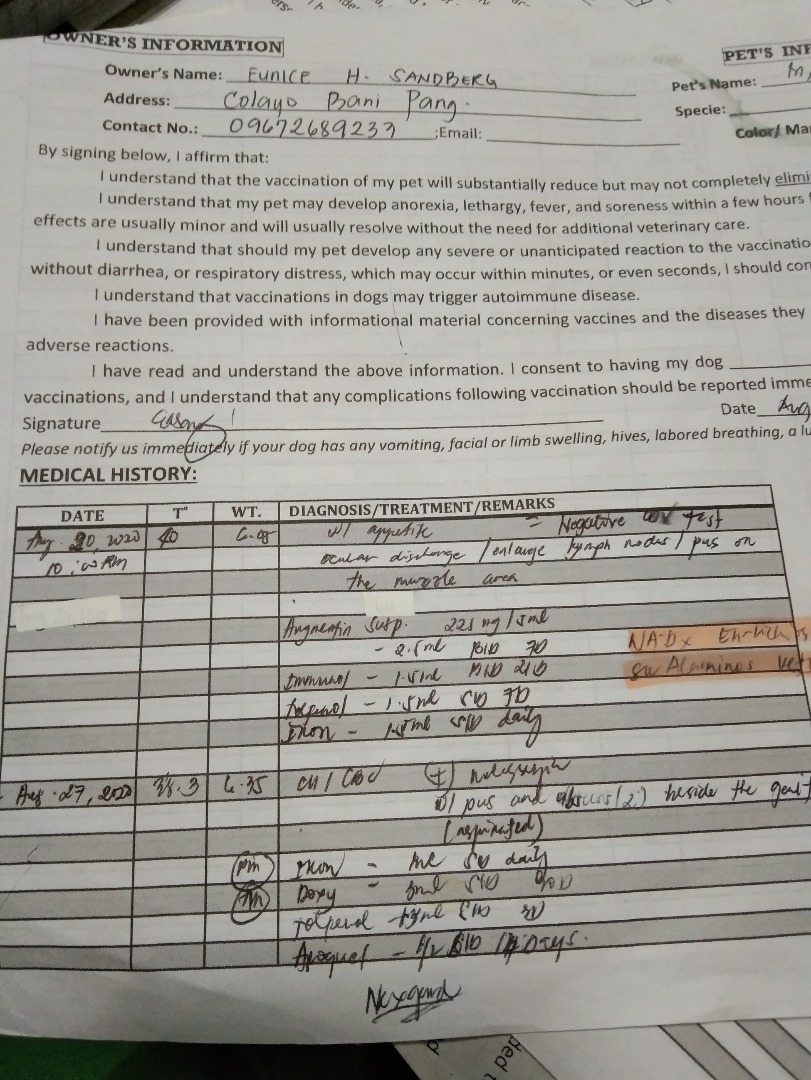 OWNER'S INFORMATION
PET'S INF
Owner's Name: EUNICE H. SANDBERG
Pet's Name:
Address: Colayo Bani Pang.
Specie:
Contact No.: 09672689237 ;Email:
Color/ Ma
By signing below, I affirm that:
I understand that the vaccination of my pet will substantially reduce but may not completely elimi
I understand that my pet may develop anorexia, lethargy, fever, and soreness within a few hours
effects are usually minor and will usually resolve without the need for additional veterinary care.
I understand that should my pet develop any severe or unanticipated reaction to the vaccinatio
without diarrhea, or respiratory distress, which may occur within minutes, or even seconds, I should con
I understand that vaccinations in dogs may trigger autoimmune disease.
I have been provided with informational material concerning vaccines and the diseases they
adverse reactions.
I have read and understand the above information. I consent to having my dog
vaccinations, and I understand that any complications following vaccination should be reported imme
Signature
Date Aug
Please notify us immediately if your dog has any vomiting, facial or limb swelling, hives, labored breathing, a lu
MEDICAL HISTORY:
DATE T° WT. DIAGNOSIS/TREATMENT/REMARKS
Aug. 20, 2020 40 w/ appetite = Negative test
ocular discharge / enlarge lymph nodes / pus on
the muzzle area
Augmentin Susp. /5ml
- 2.5ml BID 7D
Immunol - 1.5ml BID 21D
- 1.5ml SID 7D
Iron - SID daily
NA-Dx Ehrlich
Alaminos Vet
Aug. 27, 2020 38.3 6.35 CH / CBC (+)
w/ pus and (2) beside the
(aspirated)
Iron - SID daily
Doxy - SID
SID
Apoquel - 1/2 BID Days.
Nexgard